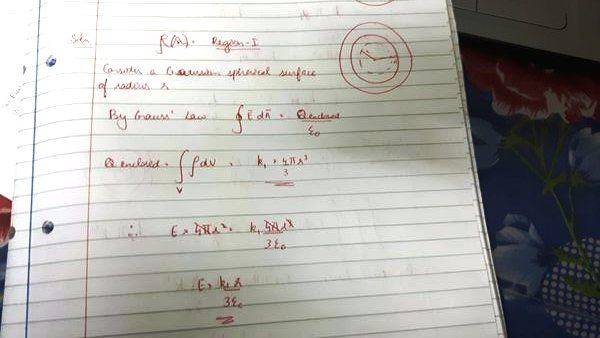 Soln
f(r). Region-I
Consider a Gaussian spherical surface
of radius r
By Gauss' Law ∮ E̅ dA̅ = Q enclosed / ε₀
Q enclosed = ∫_V ρ dV = k₁ × 4πr³ / 3
∴ E × 4πr² = k₁ 4πr³ / 3ε₀
E = k₁ r / 3ε₀